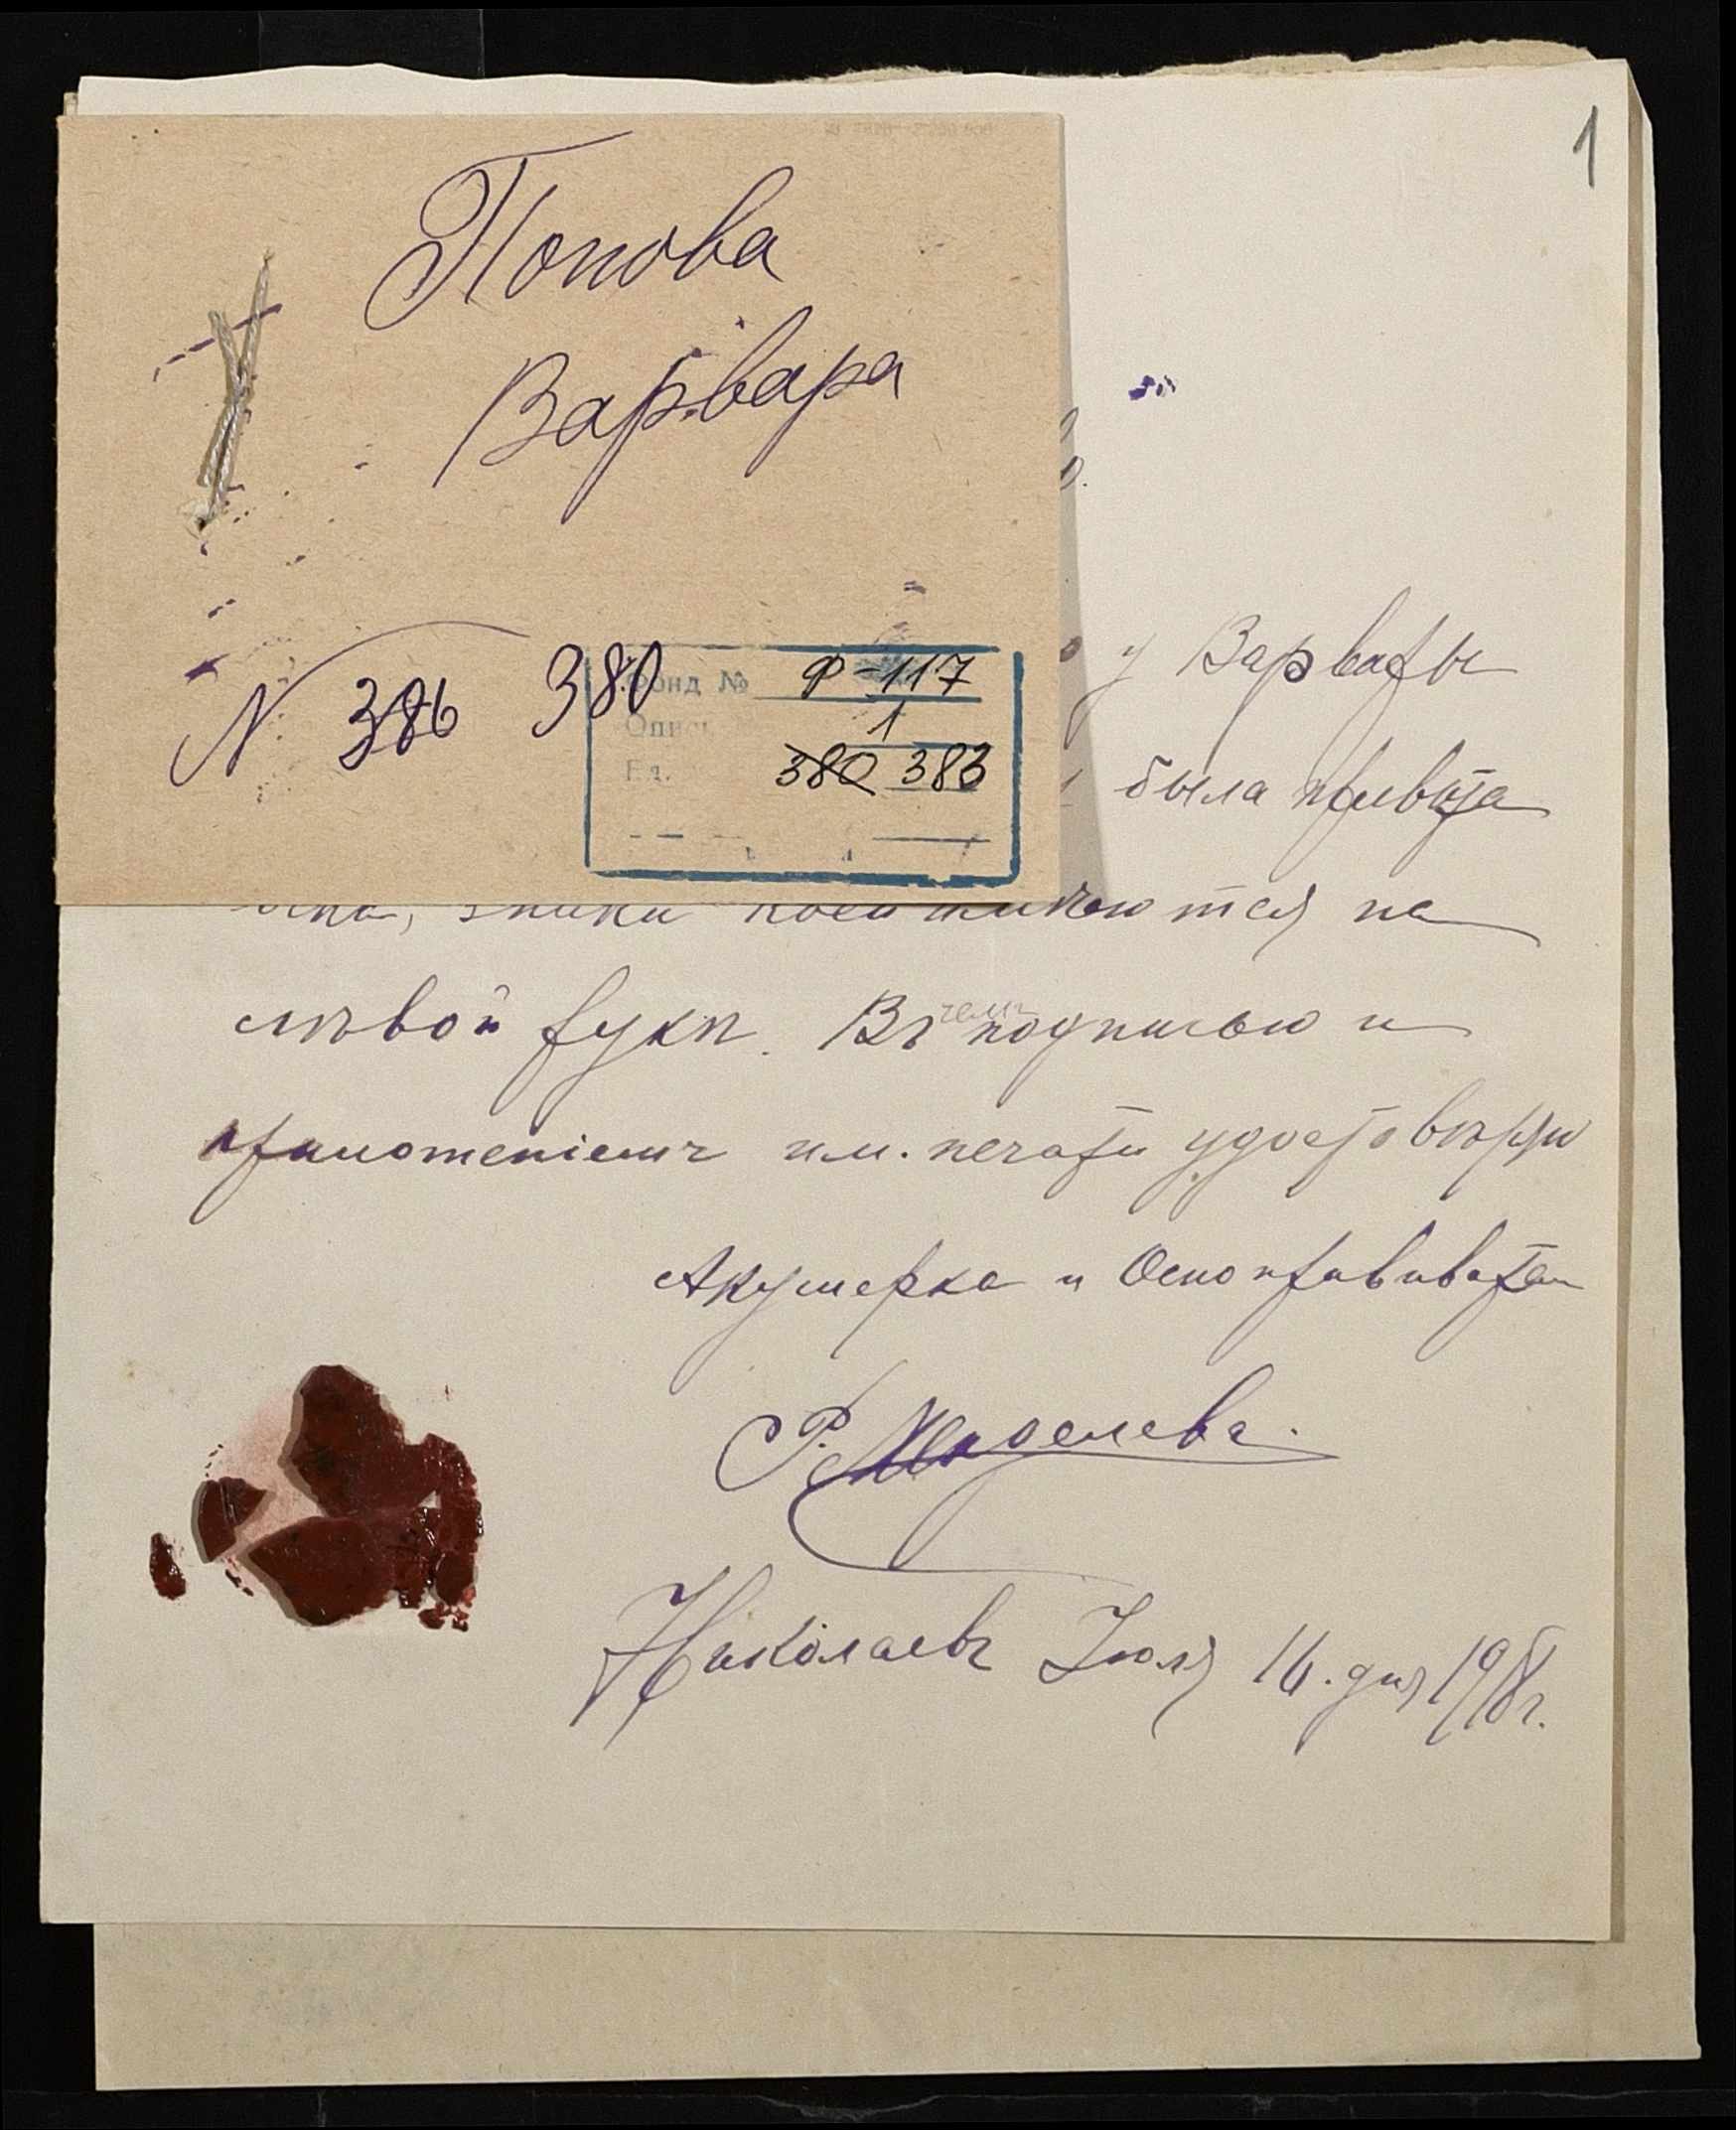 1
Попова
Варвара
N. 386 380
Фонд № Ф-117
Опись 1
Ед. 380 383
у Варвары
была привита
оспа, знаки коей имеются на
лѣвой рукѣ. Въ чемъ подписью и
приложеніемъ им. печати удостовѣряю
Акушерка и Оспопрививател
Николаевъ Іюля 16. дня 1918г.